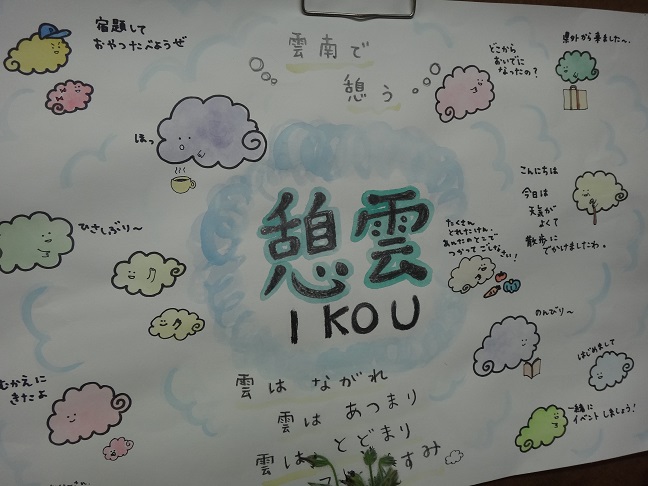 宿題して
おやつたべようぜ
雲南で
憩う
どこから
おいでに
なったの?
県外から来ました〜。
ほっ
こんにちは
今日は
天気が
よくて
散歩に
でかけましたわ。
ひさしぶり〜
憩雲
IKOU
たくさん
とれたけん、
あんたのとこで
つかってごしなさい!
のんびり〜
はじめまして
むかえに
きたよ
一緒に
イベントしましょう!
雲は ながれ
雲は あつまり
雲は とどまり